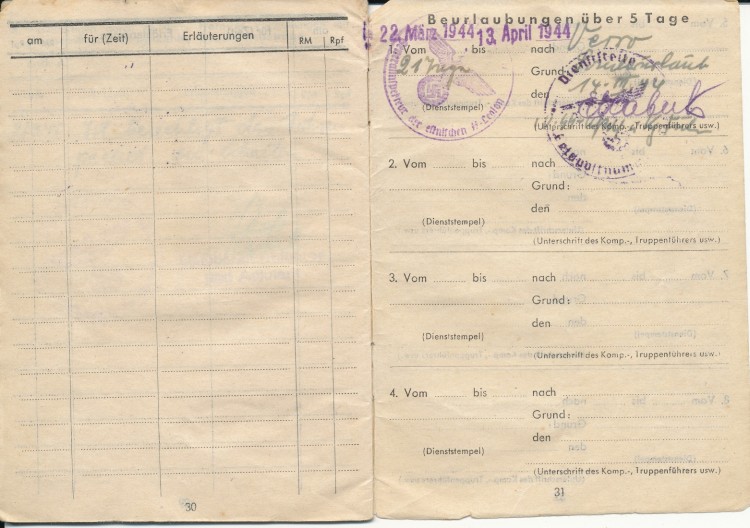 am für (Zeit) Erläuterungen RM Rpf
30
Beurlaubungen über 5 Tage
22. März 1944 13. April 1944
1. Vom bis nach Werro
21 Tage
Grund:
den 14. III. 44
(Dienststempel)
(Unterschrift des Komp.-, Truppenführers usw.)
der estnischen
Dienststelle
Feldpostnummer
2. Vom bis nach
Grund:
den
(Dienststempel)
(Unterschrift des Komp.-, Truppenführers usw.)
3. Vom bis nach
Grund:
den
(Dienststempel)
(Unterschrift des Komp.-, Truppenführers usw.)
4. Vom bis nach
Grund:
den
(Dienststempel)
(Unterschrift des Komp.-, Truppenführers usw.)
31